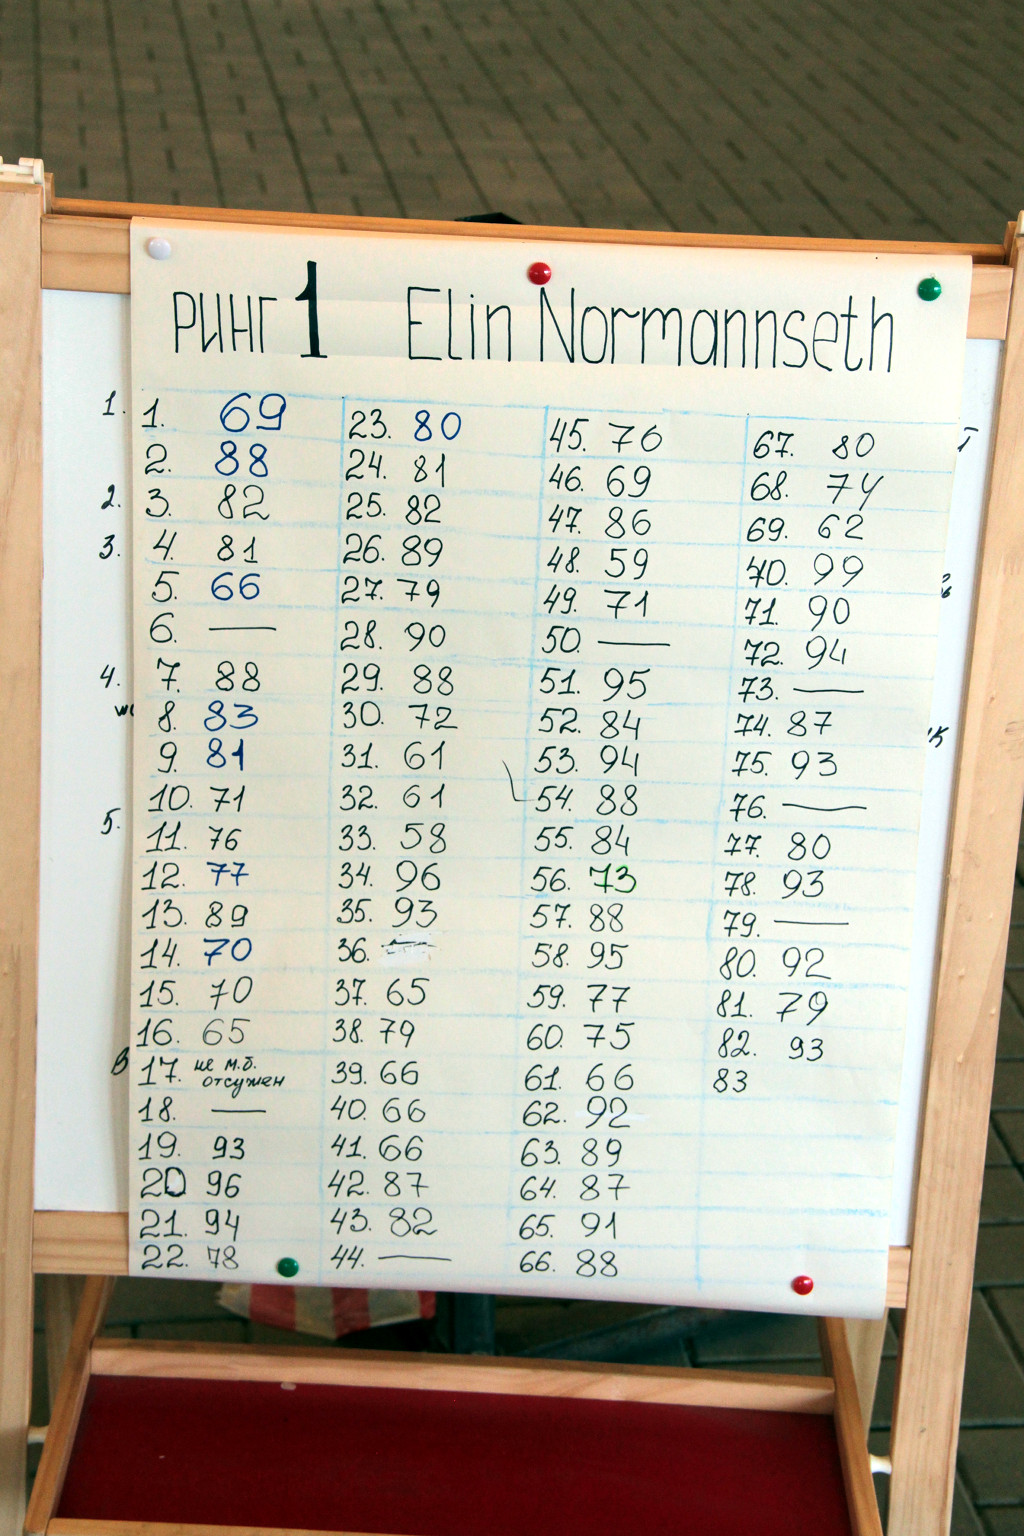 РИНГ 1 Elin Normannseth
1. 69
2. 88
3. 82
4. 81
5. 66
6. —
7. 88
8. 83
9. 81
10. 71
11. 76
12. 77
13. 89
14. 70
15. 70
16. 65
17. не м.б. отсужен
18. —
19. 93
20 96
21. 94
22. 78
23. 80
24. 81
25. 82
26. 89
27. 79
28. 90
29. 88
30. 72
31. 61
32. 61
33. 58
34. 96
35. 93
36. —
37. 65
38. 79
39. 66
40. 66
41. 66
42. 87
43. 82
44. —
45. 76
46. 69
47. 86
48. 59
49. 71
50. —
51. 95
52. 84
53. 94
54. 88
55. 84
56. 73
57. 88
58. 95
59. 77
60. 75
61. 66
62. 92
63. 89
64. 87
65. 91
66. 88
67. 80
68. 74
69. 62
70. 99
71. 90
72. 94
73. —
74. 87
75. 93
76. —
77. 80
78. 93
79. —
80. 92
81. 79
82. 93
83
1.
2.
3.
4.
5.